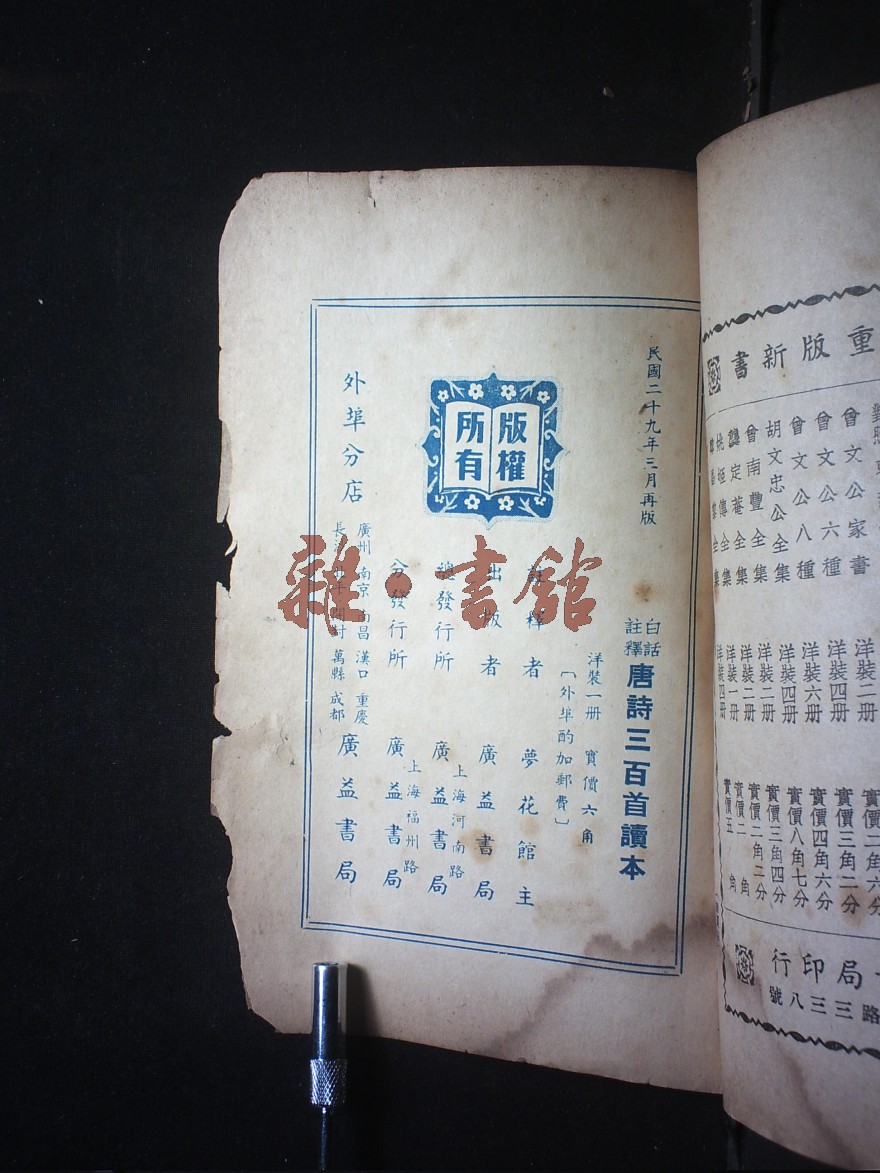 民國二十九年三月再版
白話註釋
唐詩三百首讀本
洋裝一册 實價六角
〔外埠酌加郵費〕
註釋者 夢花館主
出版者 廣益書局
總發行所 上海河南路 廣益書局
分發行所 上海福州路 廣益書局
外埠分店
廣州 南京 南昌 漢口 重慶
長沙 開封 萬縣 成都
廣益書局
版權所有
雜·書館
重版新書
曾文公家書 洋裝二册 實價二角六分
曾文公六種 洋裝四册 實價三角二分
曾文公八種 洋裝六册 實價四角六分
胡文忠公全集 洋裝四册 實價八角七分
曾南豐全集 洋裝二册 實價三角四分
龔定菴全集 洋裝二册 實價二角二分
全集 洋裝一册 實價二角
洋裝四册 實價五角
局印行
路三三八號